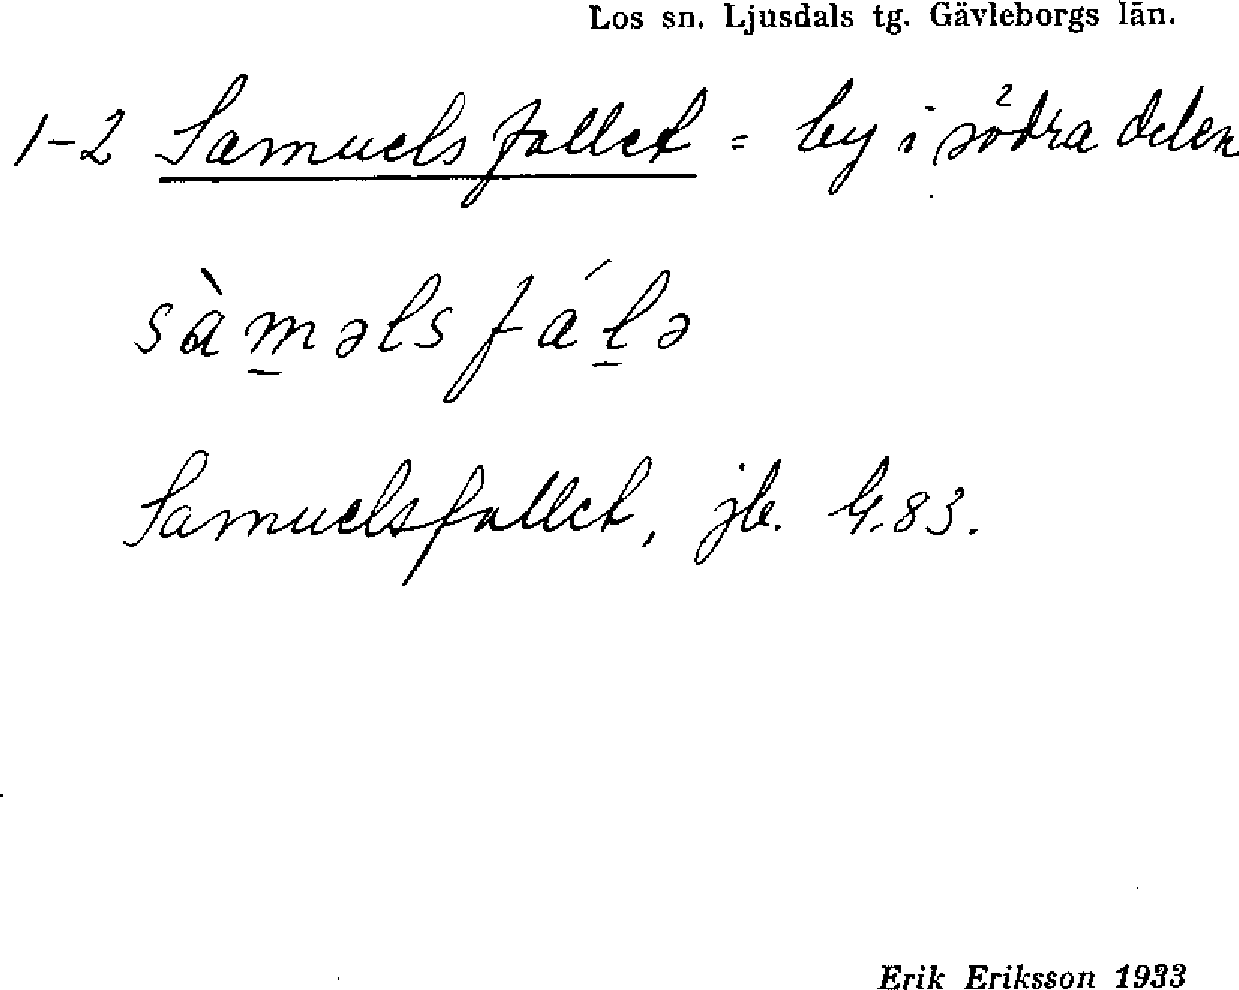 Los sn. Ljusdals tg. Gävleborgs län.
1-2 Samuelsfallet = by i södra delen
sàm̲əlsfál̲ə
Samuelsfallet, jb. G. 83.
Erik Eriksson 1933